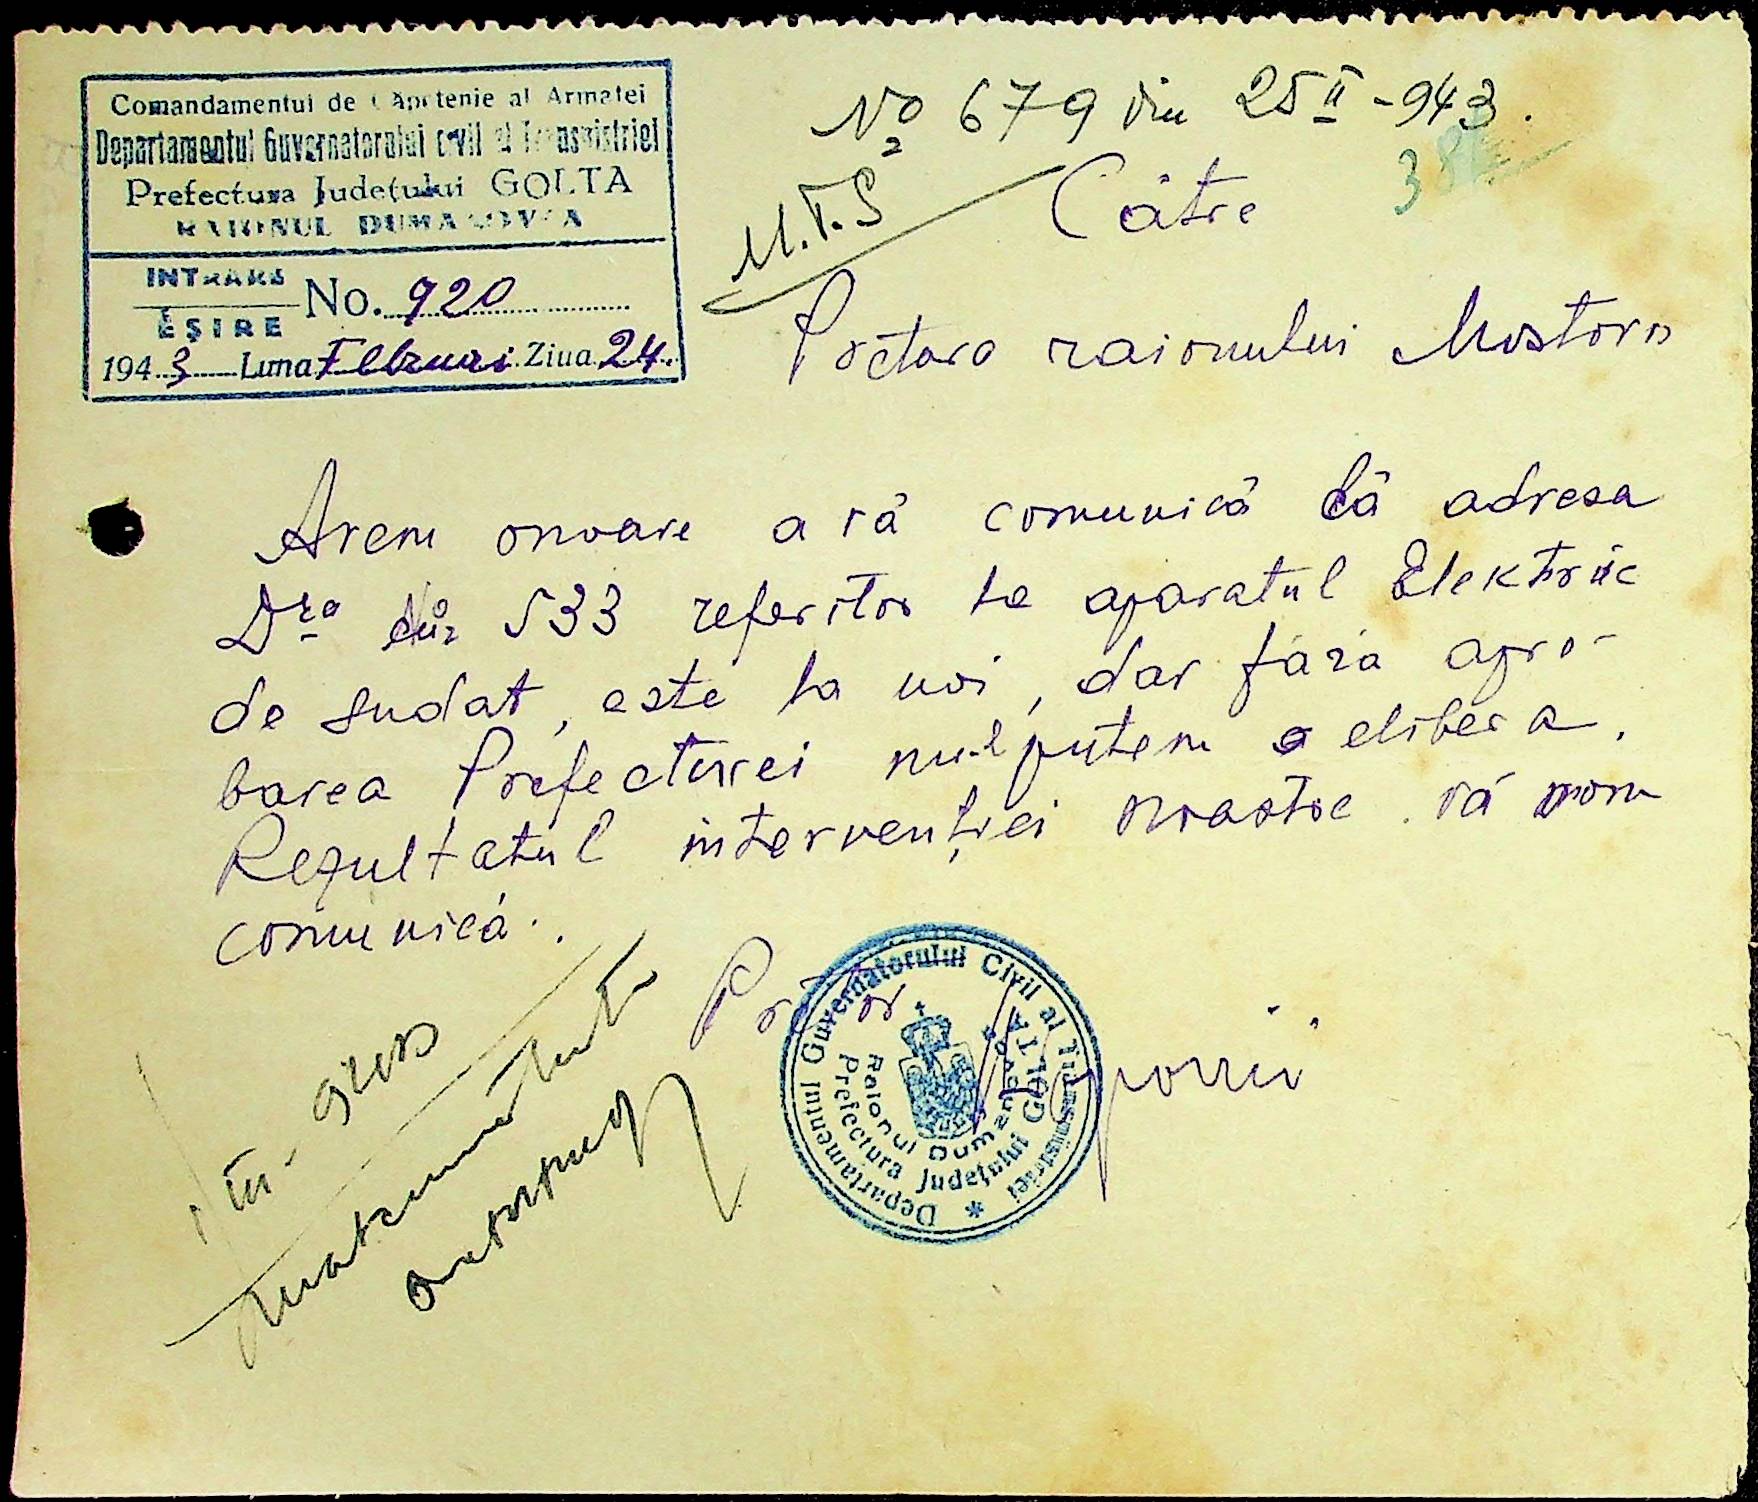 Comandamentul de Căpetenie al Armatei
Departamentul Guvernatorului civil al Transnistriei
Prefectura Județului GOLTA
RAIONUL DUMANOVCA
INTRARE
EȘIRE
No. 920
1943 Luna Februari Ziua 24.
No 679 din 25 II -943.
38
M.T.S
Către
Pretura raionului Mostovo
Avem onoare a vă comunică că adresa
Dvs No 533 referitor la aparatul Elektric
de sudat, este la noi, dar fără apro-
barea Prefecturei nu-l putem elibera.
Rezultatul intervenției noastre vă vom
comunică.
Pretor
Departamentul Guvernatorului Civil al Transnistriei *
Prefectura Județului GOLTA
Raionul Dumanovca